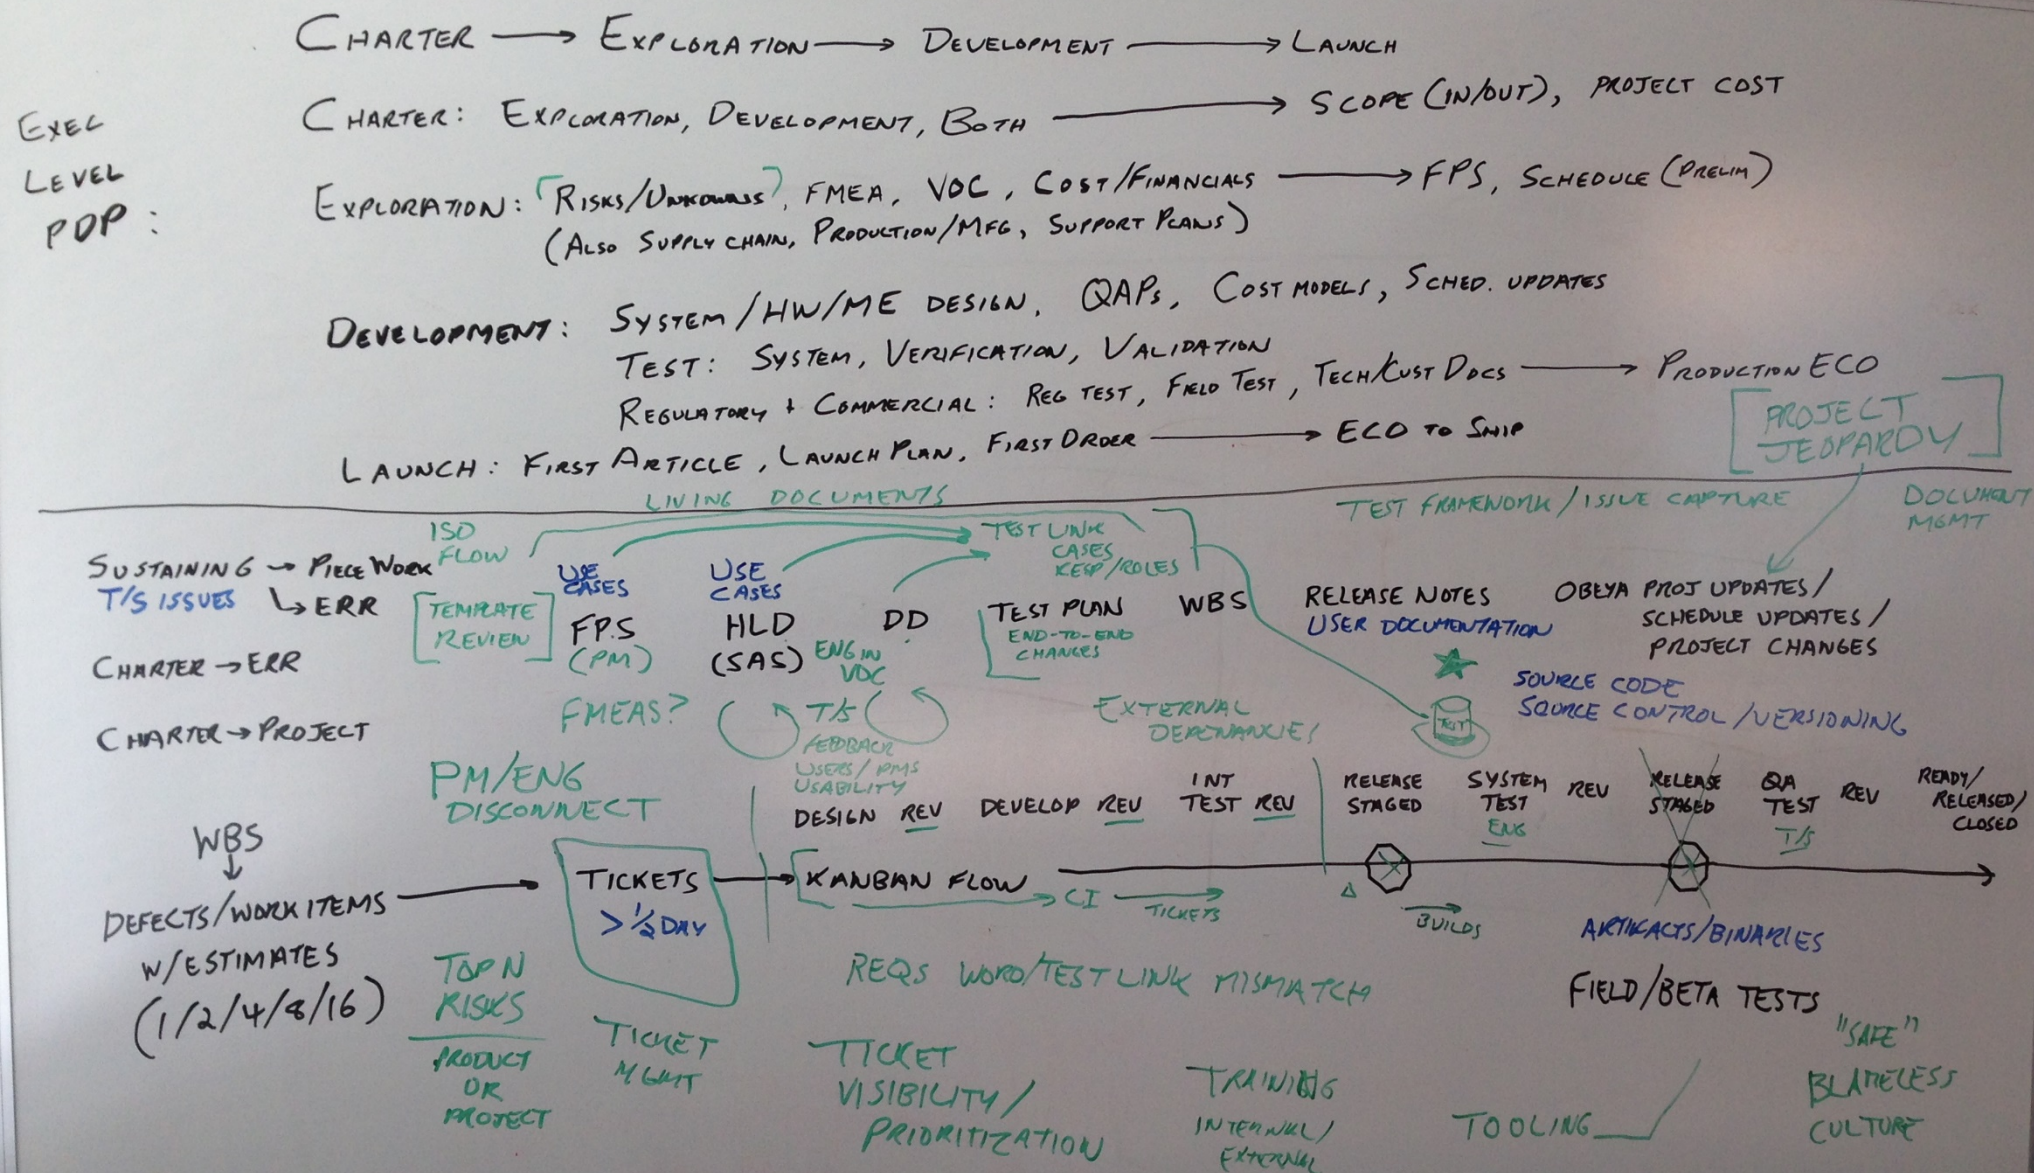 CHARTER → EXPLORATION → DEVELOPMENT → LAUNCH
EXEC
LEVEL
PDP :
CHARTER: EXPLORATION, DEVELOPMENT, BOTH → SCOPE (IN/OUT), PROJECT COST
EXPLORATION: RISKS/UNKNOWNS, FMEA, VOC, COST/FINANCIALS → FPS, SCHEDULE (PRELIM)
(ALSO SUPPLY CHAIN, PRODUCTION/MFG, SUPPORT PLANS)
DEVELOPMENT: SYSTEM/HW/ME DESIGN, QAPs, COST MODELS, SCHED. UPDATES
TEST: SYSTEM, VERIFICATION, VALIDATION
REGULATORY + COMMERCIAL: REG TEST, FIELD TEST, TECH/CUST DOCS → PRODUCTION ECO
LAUNCH: FIRST ARTICLE, LAUNCH PLAN, FIRST ORDER → ECO TO SHIP
[PROJECT
JEOPARDY]
LIVING DOCUMENTS
TEST FRAMEWORK/ISSUE CAPTURE
DOCUMENT
MGMT
ISO
FLOW
TEST LINK
CASES
RESP/ROLES
SUSTAINING → PIECE WORK
T/S ISSUES
↳ ERR
[TEMPLATE
REVIEW]
USE
CASES
FPS
(PM)
USE
CASES
HLD
(SAS)
DD
ENG IN
VOC
TEST PLAN
END-TO-END
CHANGES
WBS
RELEASE NOTES
USER DOCUMENTATION
OBEYA PROJ UPDATES/
SCHEDULE UPDATES/
PROJECT CHANGES
CHARTER → ERR
CHARTER → PROJECT
FMEAS?
T/S
FEEDBACK
USERS/PMS
USABILITY
EXTERNAL
DEPENANCIES
TEST
SOURCE CODE
SOURCE CONTROL/VERSIONING
PM/ENG
DISCONNECT
DESIGN REV
DEVELOP REV
INT
TEST REV
RELEASE
STAGED
SYSTEM
TEST
ENG
REV
RELEASE
STAGED
QA
TEST
T/S
REV
READY/
RELEASED/
CLOSED
WBS
↓
DEFECTS/WORK ITEMS →
W/ESTIMATES
(1/2/4/8/16)
TICKETS →
> 1/2 DAY
KANBAN FLOW →
→ CI → TICKETS
Δ
BUILDS
ARTIFACTS/BINARIES
FIELD/BETA TESTS
TOP N
RISKS
PRODUCT
OR
PROJECT
TICKET
MGMT
REQS WORD/TEST LINK MISMATCH
TICKET
VISIBILITY/
PRIORITIZATION
TRAINING
INTERNAL/
EXTERNAL
TOOLING
"SAFE"
BLAMELESS
CULTURE